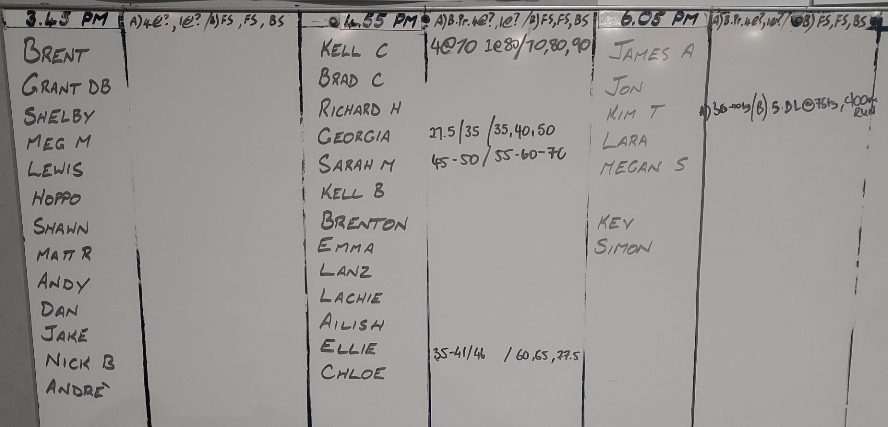 3.45 PM A) 4@?, 1@? /B) FS, FS, BS
BRENT
GRANT DB
SHELBY
MEG M
LEWIS
HOPPO
SHAWN
MATT R
ANDY
DAN
JAKE
NICK B
ANDRÉ
4.55 PM A) B.Pr. 4@?, 1@? /B) FS, FS, BS
KELL C 4@70 1@80/70,80,90
BRAD C
RICHARD H
GEORGIA 27.5/35 /35,40,50
SARAH M 45-50/55-60-70
KELL B
BRENTON
EMMA
LANZ
LACHIE
AILISH
ELLIE 35-41/46 /60,65,77.5
CHLOE
6.05 PM A) B.Pr. 4@?, 1@?/ B) FS, FS, BS
JAMES A
JON
KIM T /B) 5 DL@75kg, 400m
RUN
LARA
MEGAN S
KEV
SIMON